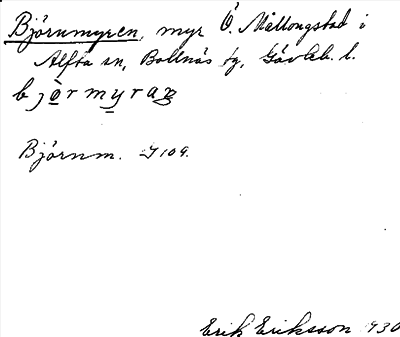 Björnmyren, myr Ö. Mållongstad i
Alfta sn, Bollnäs tg, Gävleb. l.
björmyran
Björnm. J 109.
Erik Eriksson 1930